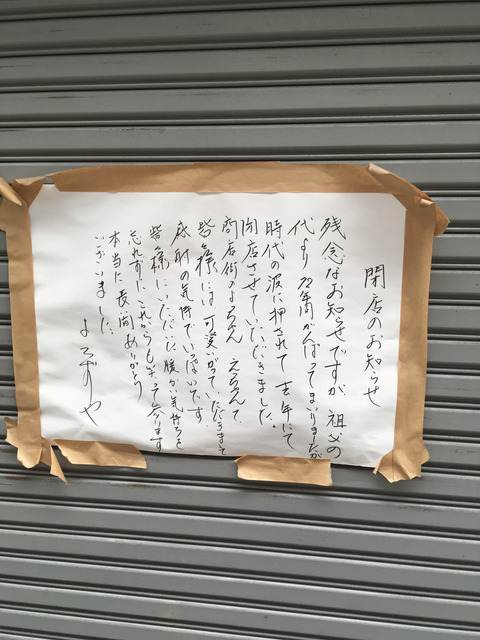 閉店のお知らせ
残念なお知らせですが、祖父の
代より72年間がんばってまいりましたが
時代の波に押されて去年にて
閉店させていただきました。
商店街のよろちん えろちんで、
皆様には可愛いがっていただきまして
感謝の気持でいっぱいです。
皆様にいただいた暖かい気持ちを
忘れずに、これからも
本当に長い間ありがとう
ございました。
よろずや